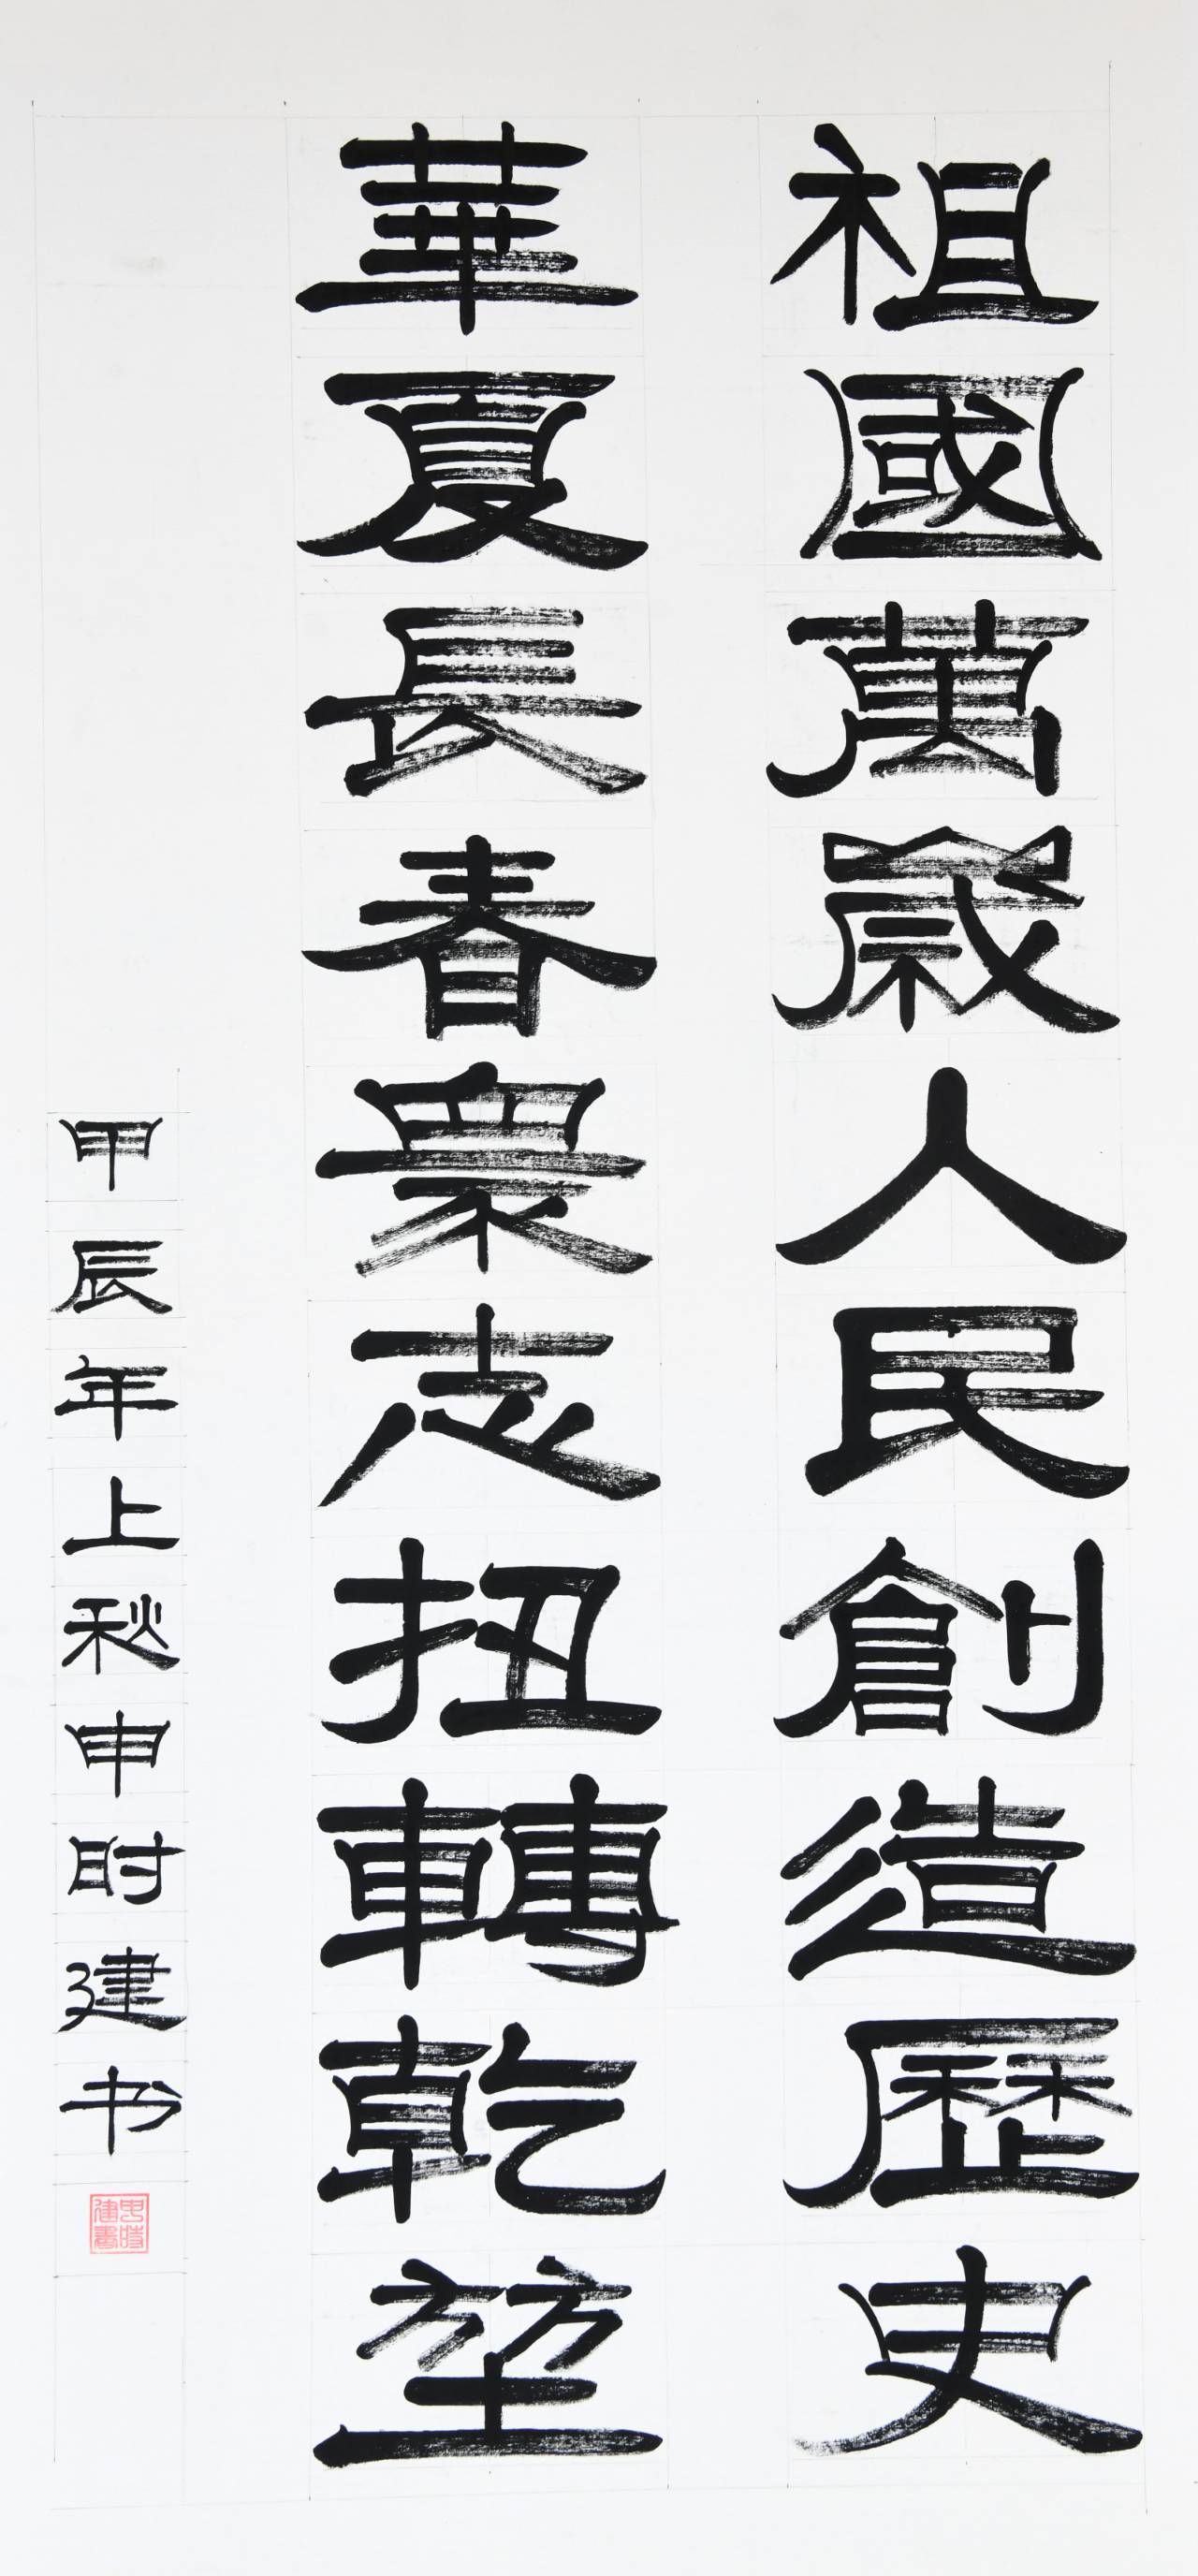 祖國萬歲人民創造歷史
華夏長春衆志扭轉乾堃
甲辰年上秋申时建书
申時建書